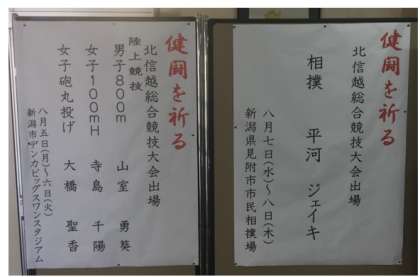 健闘を祈る
北信越総合競技大会出場
相撲 平河 ジェイキ
八月七日(水)~八日(木)
新潟県見附市市民相撲場
健闘を祈る
北信越総合競技大会出場
陸上競技
男子800m 山室 勇葵
女子100mH 寺島 千陽
女子砲丸投げ 大橋 聖香
八月五日(月)~六日(火)
新潟市デンカビッグスワンスタジアム